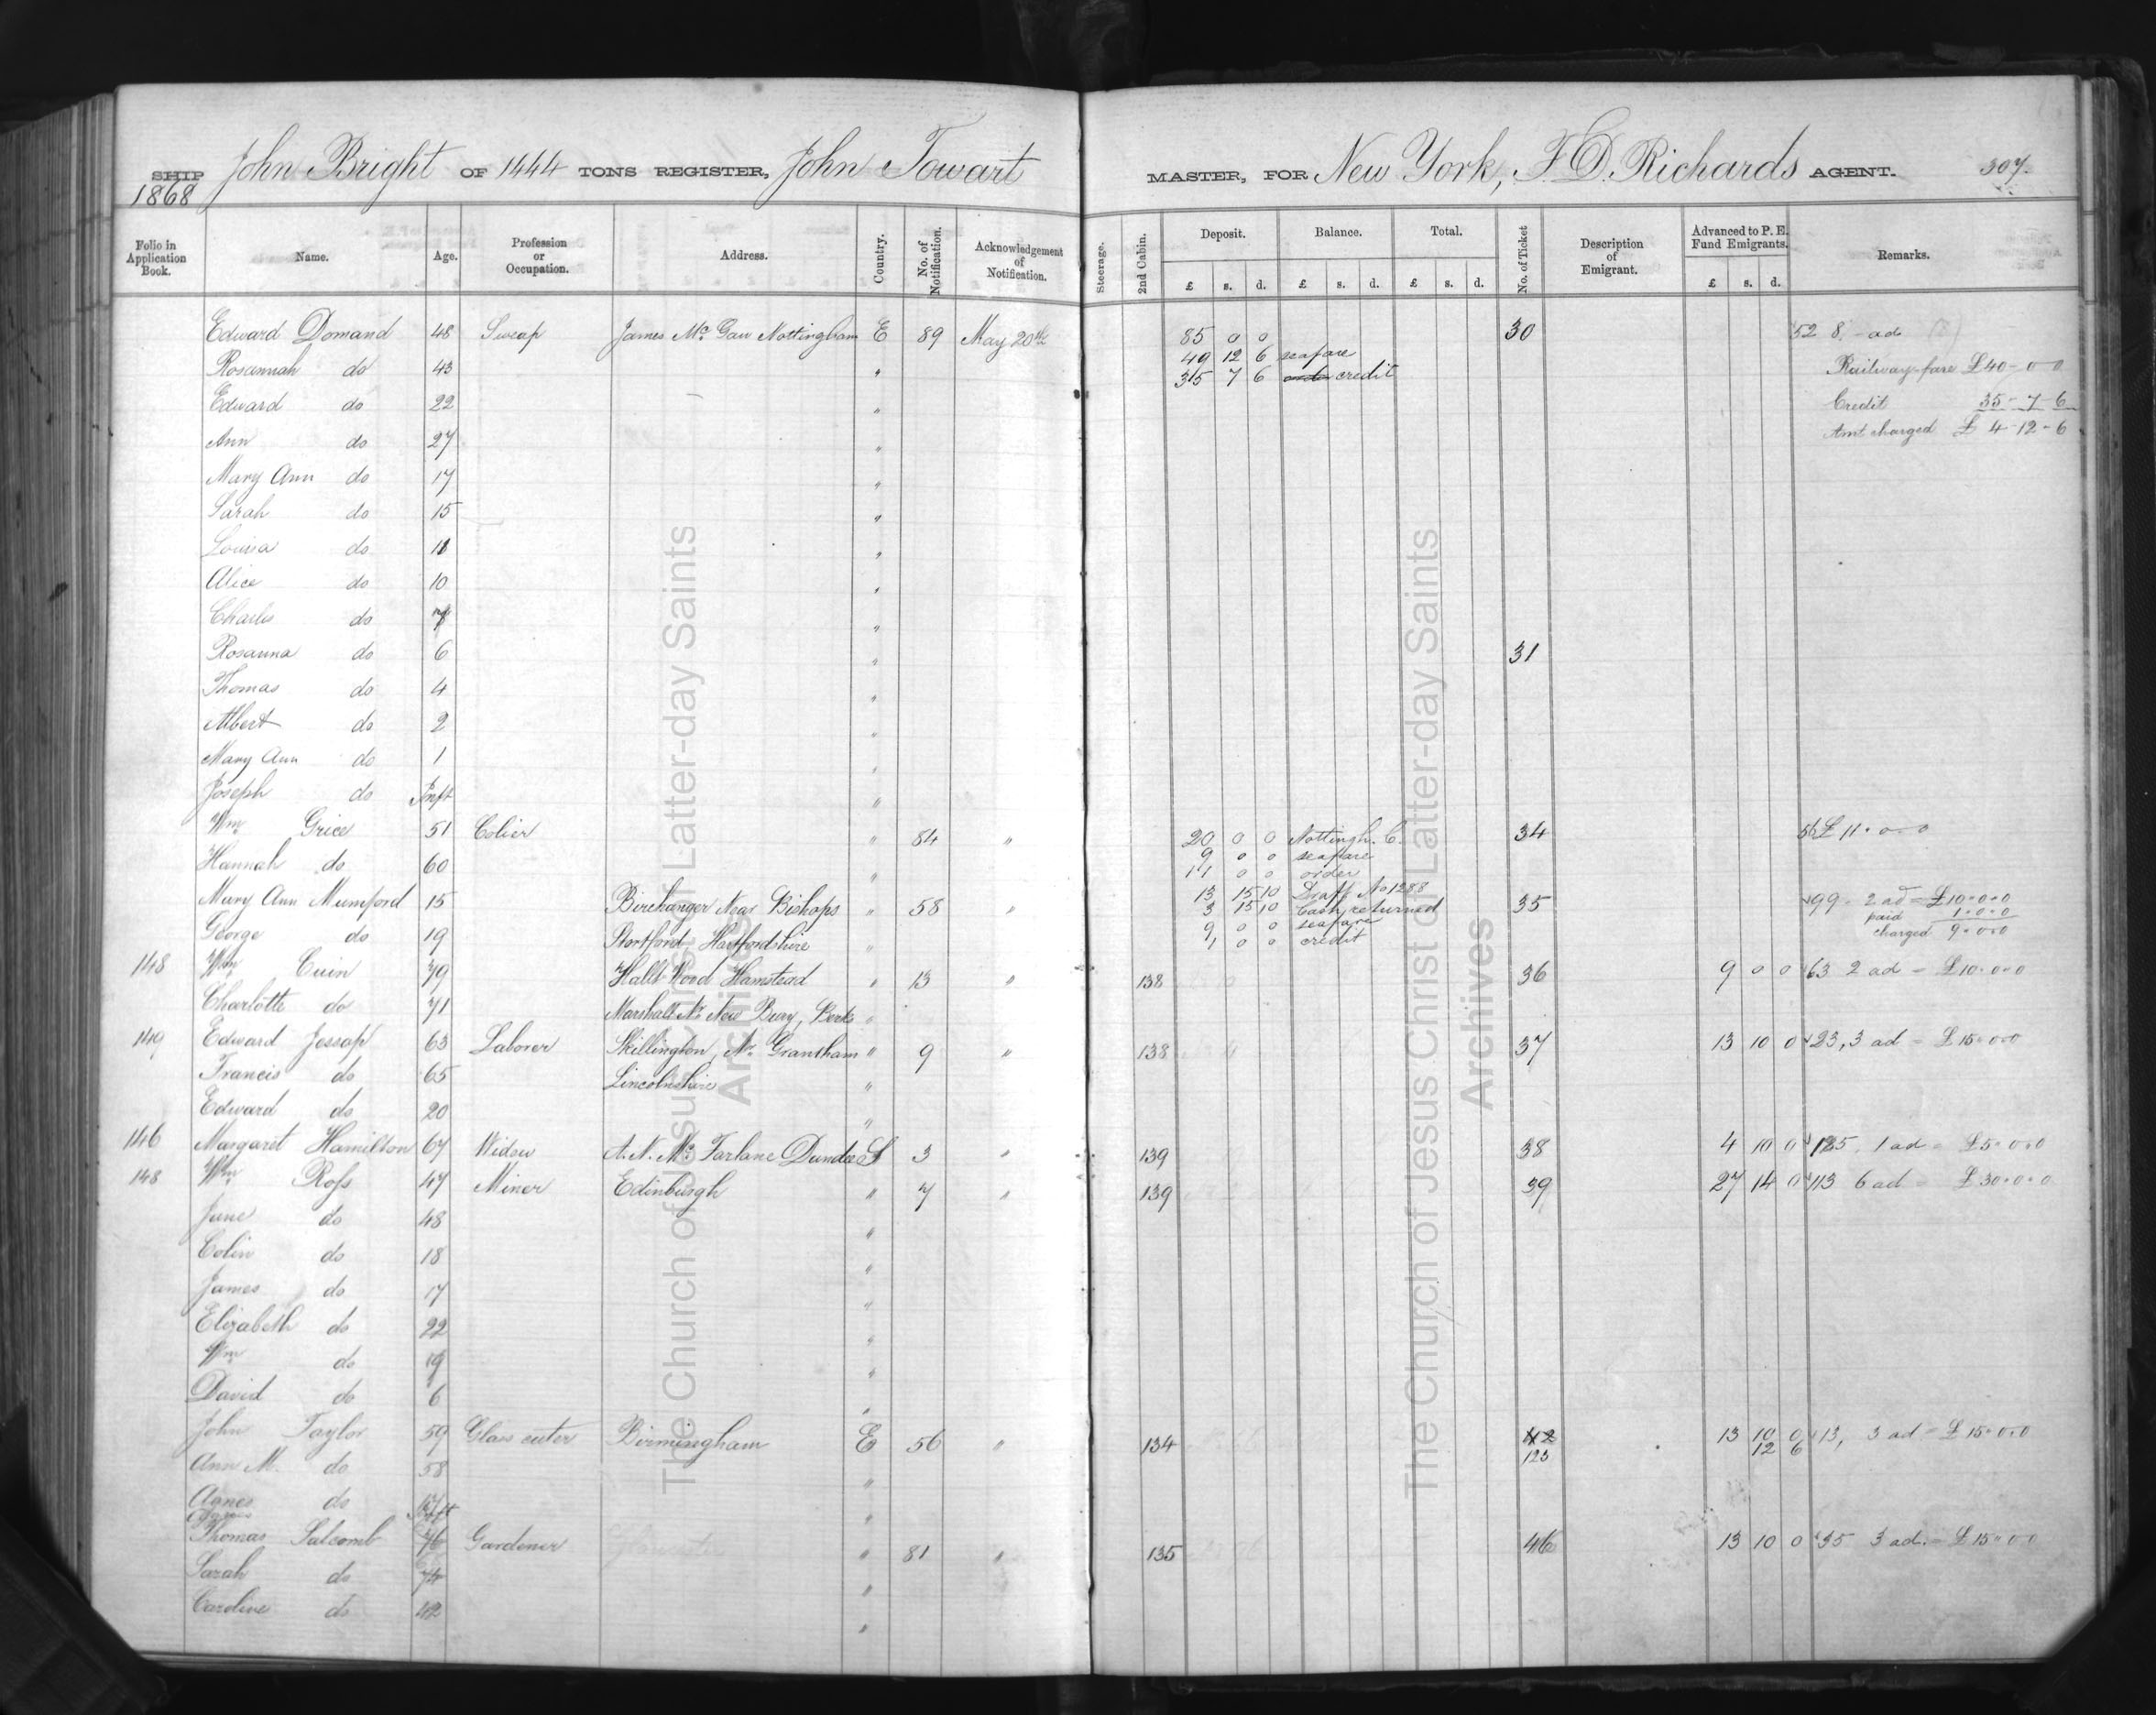 SHIP John Bright OF 1444 TONS REGISTER, John Towart MASTER, FOR New York, F D Richards AGENT. 307.
1868
Folio in Application Book. Name. Age. Profession or Occupation. Address. Country. No. of Notification. Acknowledgement of Notification. Steerage. 2nd Cabin. Deposit. Balance. Total. No. of Ticket Description of Emigrant. Advanced to P. E. Fund Emigrants. Remarks.
£ s. d. £ s. d. £ s. d. £ s. d.
Edward Domand 48 Sweap James Mc Gaw Nottingham E 89 May 20th 85 0 0 30 52 8 - ad
49 12 6 seafare
Rosannah do 43 " 35 7 6 credit Railway fare £40-0 0
Edward do 22 " Credit 35-7-6
Ann do 27 " Amt charged £ 4-12-6
Mary Ann do 17 "
Sarah do 15 "
Louisa do 11 "
Alice do 10 "
Charles do 7 "
Rosanna do 6 " 31
Thomas do 4 "
Albert do 2 "
Mary Ann do 1 "
Joseph do Inft "
Wm Grice 51 Colier " 84 " 20 0 0 Nottingh. C. 34 56 £ 11.0-0
9 0 0 seafare
Hannah do 60 " 11 0 0 order
13 15 10 Draft No 1288
Mary Ann Mumford 15 Birchanger Near Bishops " 58 " 3 15 10 Cash returned 35 99 - 2 ad = £10.0.0
paid 1.0.0
9 0 0 seafare
George do 19 Stortford, Hartfordshire " 1 0 0 credit charged 9.0.0
148 Wm Cuin 79 Hallt Wood Hamstead " 13 " 138 36 9 0 0 63 2 ad = £10.0.0
Charlotte do 71 Marshall Nr New Bury, Berks "
149 Edward Jessop 63 Laborer Skillington, Nr Grantham " 9 " 138 37 13 10 0 23, 3 ad = £15.0.0
Francis do 65 Lincolnshire "
Edward do 20 "
146 Margaret Hamilton 67 Widow A. N. Mc Farlane Dundee S 3 " 139 38 4 10 0 125, 1 ad = £5.0.0
148 Wm Ross 47 Miner Edinburgh " 7 " 139 39 27 14 0 113 6 ad = £30.0.0
Jane do 48 "
Colin do 18 "
James do 17 "
Elizabeth do 22 "
Wm do 19 "
David do 6 "
John Taylor 59 Glass cuter Birmingham E 56 " 134 42 13 10 0 13, 3 ad = £15.0.0
123 12 6
Ann M. do 58 "
Agnes do "
Thomas Salcomb 76 Gardener Gloucester " 81 " 135 46 13 10 0 35 3 ad. = £15.0.0
Sarah do 74 "
Caroline do 42 "
The Church of Jesus Christ of Latter-day Saints
Archives
The Church of Jesus Christ of Latter-day Saints
Archives